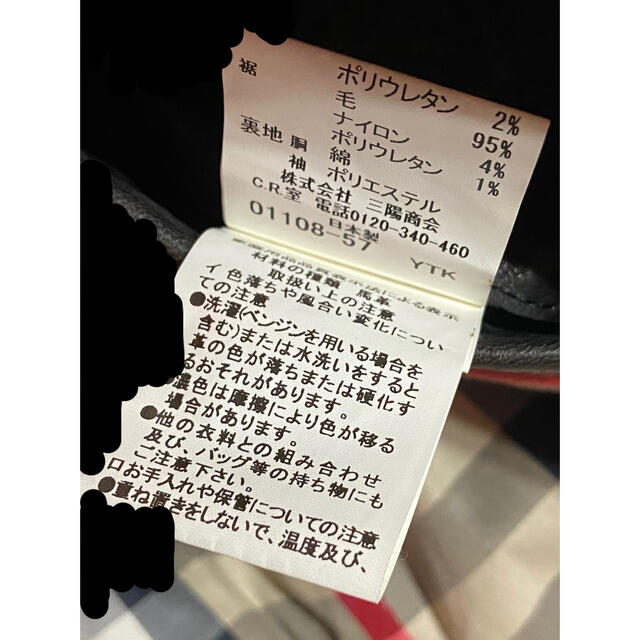 ポリウレタン 2%
裾 毛 95%
ナイロン 4%
ポリウレタン 1%
裏地 胴 綿
袖 ポリエステル
株式会社 三陽商会
C.R.室 電話0120-340-460
日本製
01108-57 YTK
家庭用品品質表示法による表示
材料の種類 馬革
取扱い上の注意
イ色落ちや風合い変化につい
ての注意
●洗濯(ベンジンを用いる場合を
含む)または水洗いをすると
革の色が落ちまたは硬化す
るおそれがあります。
●濃色は摩擦により色が移る
場合があります。
●他の衣料との組み合わせ
及び、バッグ等の持ち物にも
ご注意下さい。
ロお手入れや保管についての注意
●重ね置きをしないで、温度及び、